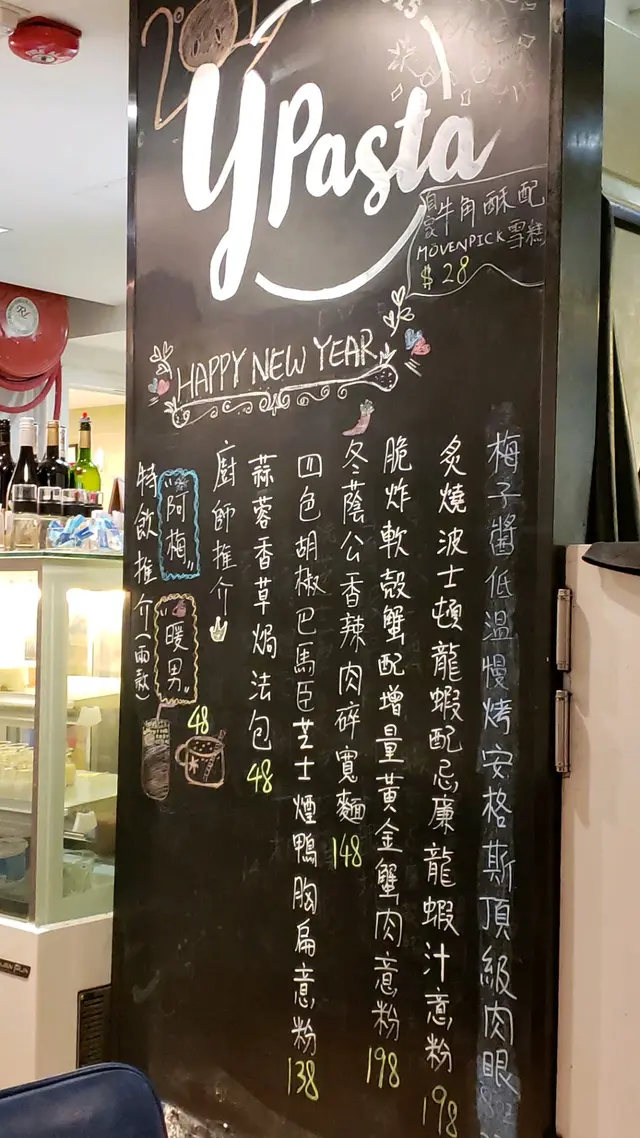 Y Pasta
牛角酥配
MÖVENPICK雪糕
$28
HAPPY NEW YEAR
梅子醬低溫慢烤安格斯頂級肉眼
炙燒波士頓龍蝦配忌廉龍蝦汁意粉 198
脆炸軟殼蟹配增量黃金蟹肉意粉 198
冬蔭公香辣肉碎寬麵 148
四色胡椒巴馬臣芝士煙鴨胸扁意粉 138
蒜蓉香草焗法包 48
廚師推介
"阿梅"
"暖男"
48
特飲推介(兩款)